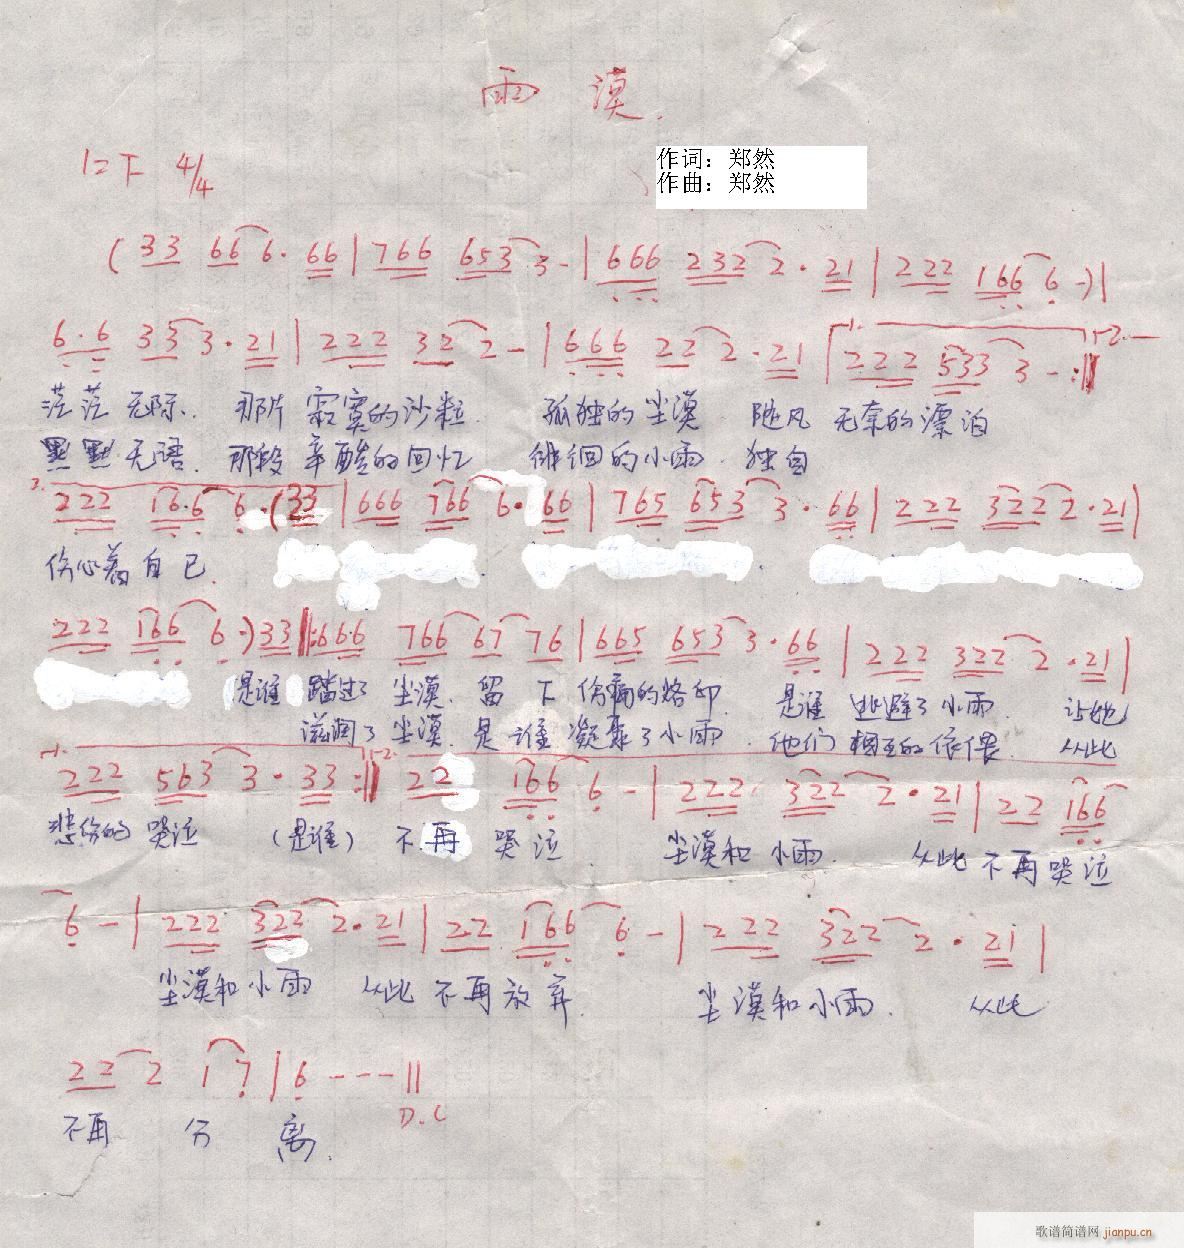 雨 漠
1=下 4/4
作词：郑然
作曲：郑然
( 33 66 6· 66 | 766 653 3 - | 666 232 2 · 21 | 222 166 6 - ) |
6·6 33 3 · 21 | 222 32 2 - | 666 22 2 · 21 | 1. 222 533 3 - :‖ 2.
茫茫无际 那片寂寞的沙粒 孤独的尘漠 随风无奈的漂泊
默默无语 那段辛酸的回忆 徘徊的小雨 独自
222 16·6 6 · (33 | 666 766 6 · 66 | 765 653 3 · 66 | 222 322 2 · 21 |
伤心着自己
222 166 6 ·) 33 ‖: 666 766 67 76 | 665 653 3 · 66 | 222 322 2 · 21 |
是谁 踏过了尘漠 留下伤痛的烙印 是谁逃避了小雨 让她
滋润了尘漠 是谁凝聚了小雨 他们相互的依偎 从此
1. 222 563 3 · 33 :‖ 2. 22 166 6 - | 222 322 2 · 21 | 22 166
悲伤的哭泣 (是谁) 不再哭泣 尘漠和小雨 从此不再哭泣
6 - | 222 322 2 · 21 | 22 166 6 - | 222 322 2 · 21 |
尘漠和小雨 从此不再放弃 尘漠和小雨 从此
22 2 1 7 | 6 - - - ‖
D.C
不再 分 离
歌谱简谱网 jianpu.cn